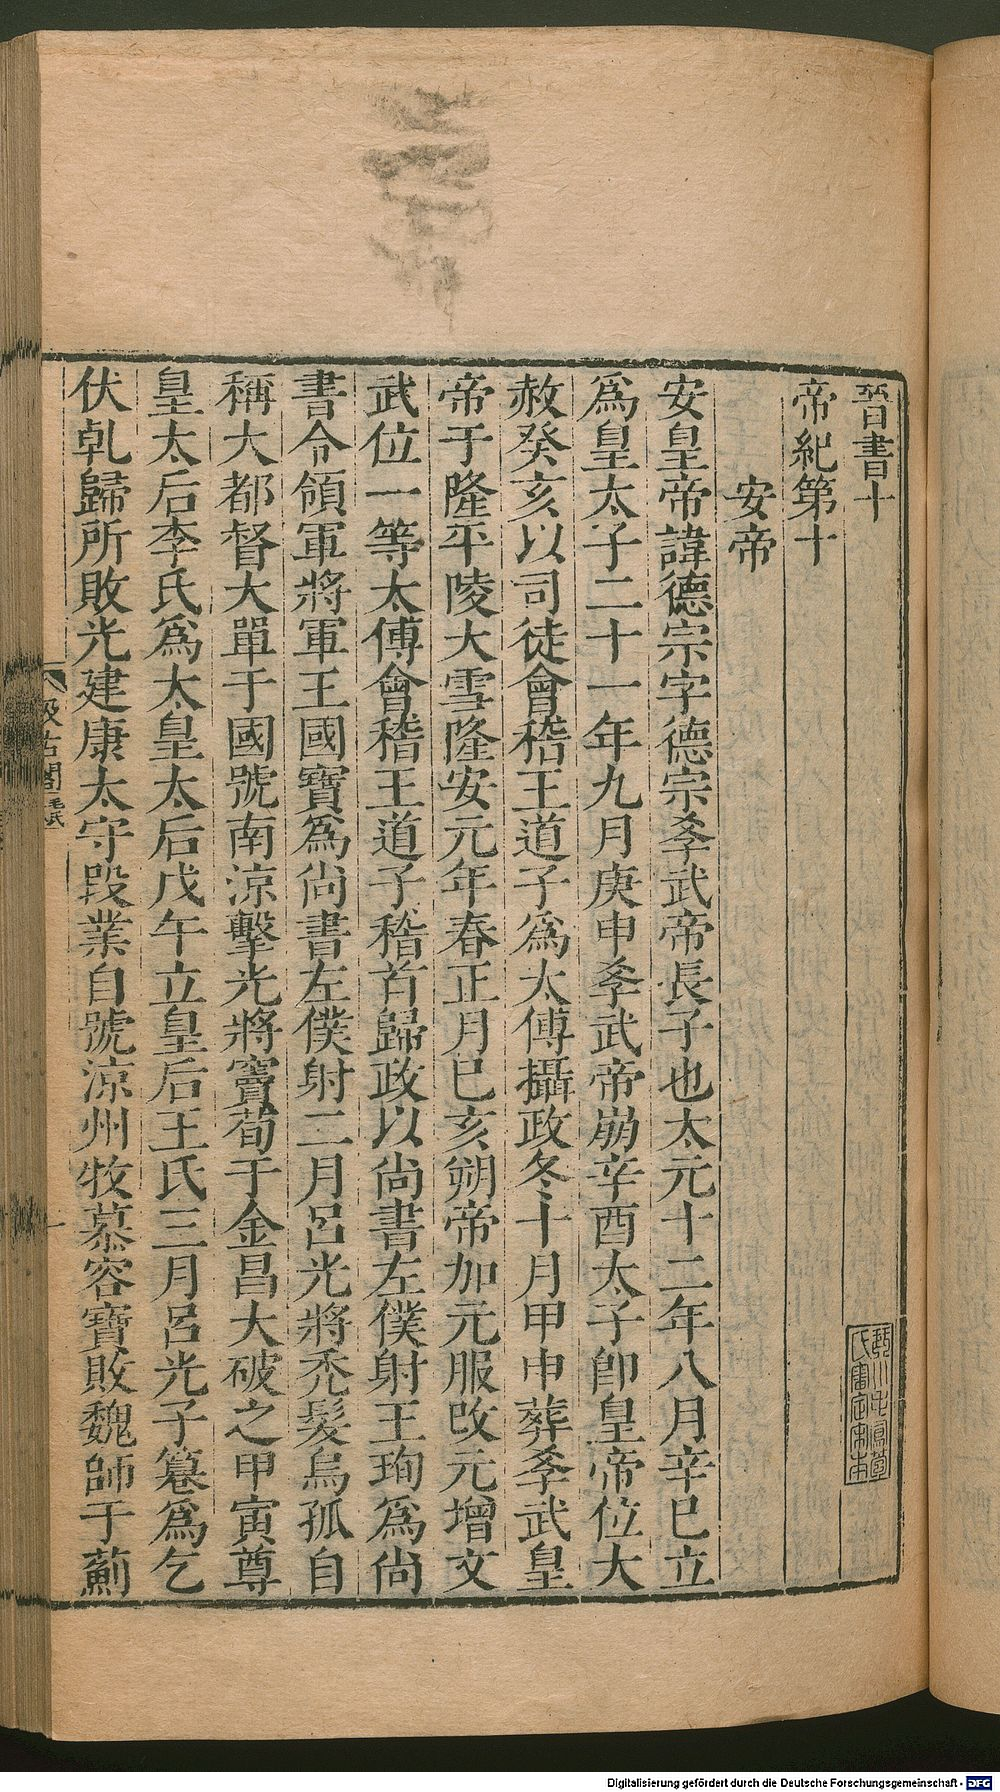 晉書十
帝紀第十
安帝
安皇帝諱德宗字德宗孝武帝長子也太元十二年八月辛巳立
爲皇太子二十一年九月庚申孝武帝崩辛酉太子卽皇帝位大
赦癸亥以司徒會稽王道子爲太傅攝政冬十月甲申葬孝武皇
帝于隆平陵大雪隆安元年春正月己亥朔帝加元服改元增文
武位一等太傅會稽王道子稽首歸政以尙書左僕射王珣爲尙
書令領軍將軍王國寶爲尙書左僕射二月呂光將禿髮烏孤自
稱大都督大單于國號南涼擊光將竇苟于金昌大破之甲寅尊
皇太后李氏爲太皇太后戊午立皇后王氏三月呂光子纂爲乞
伏乹歸所敗光建康太守段業自號涼州牧慕容寶敗魏師于薊
汲古閣 毛氏
一
琴川毛鳳苞
氏審定宋本
Digitalisierung gefördert durch die Deutsche Forschungsgemeinschaft - DFG